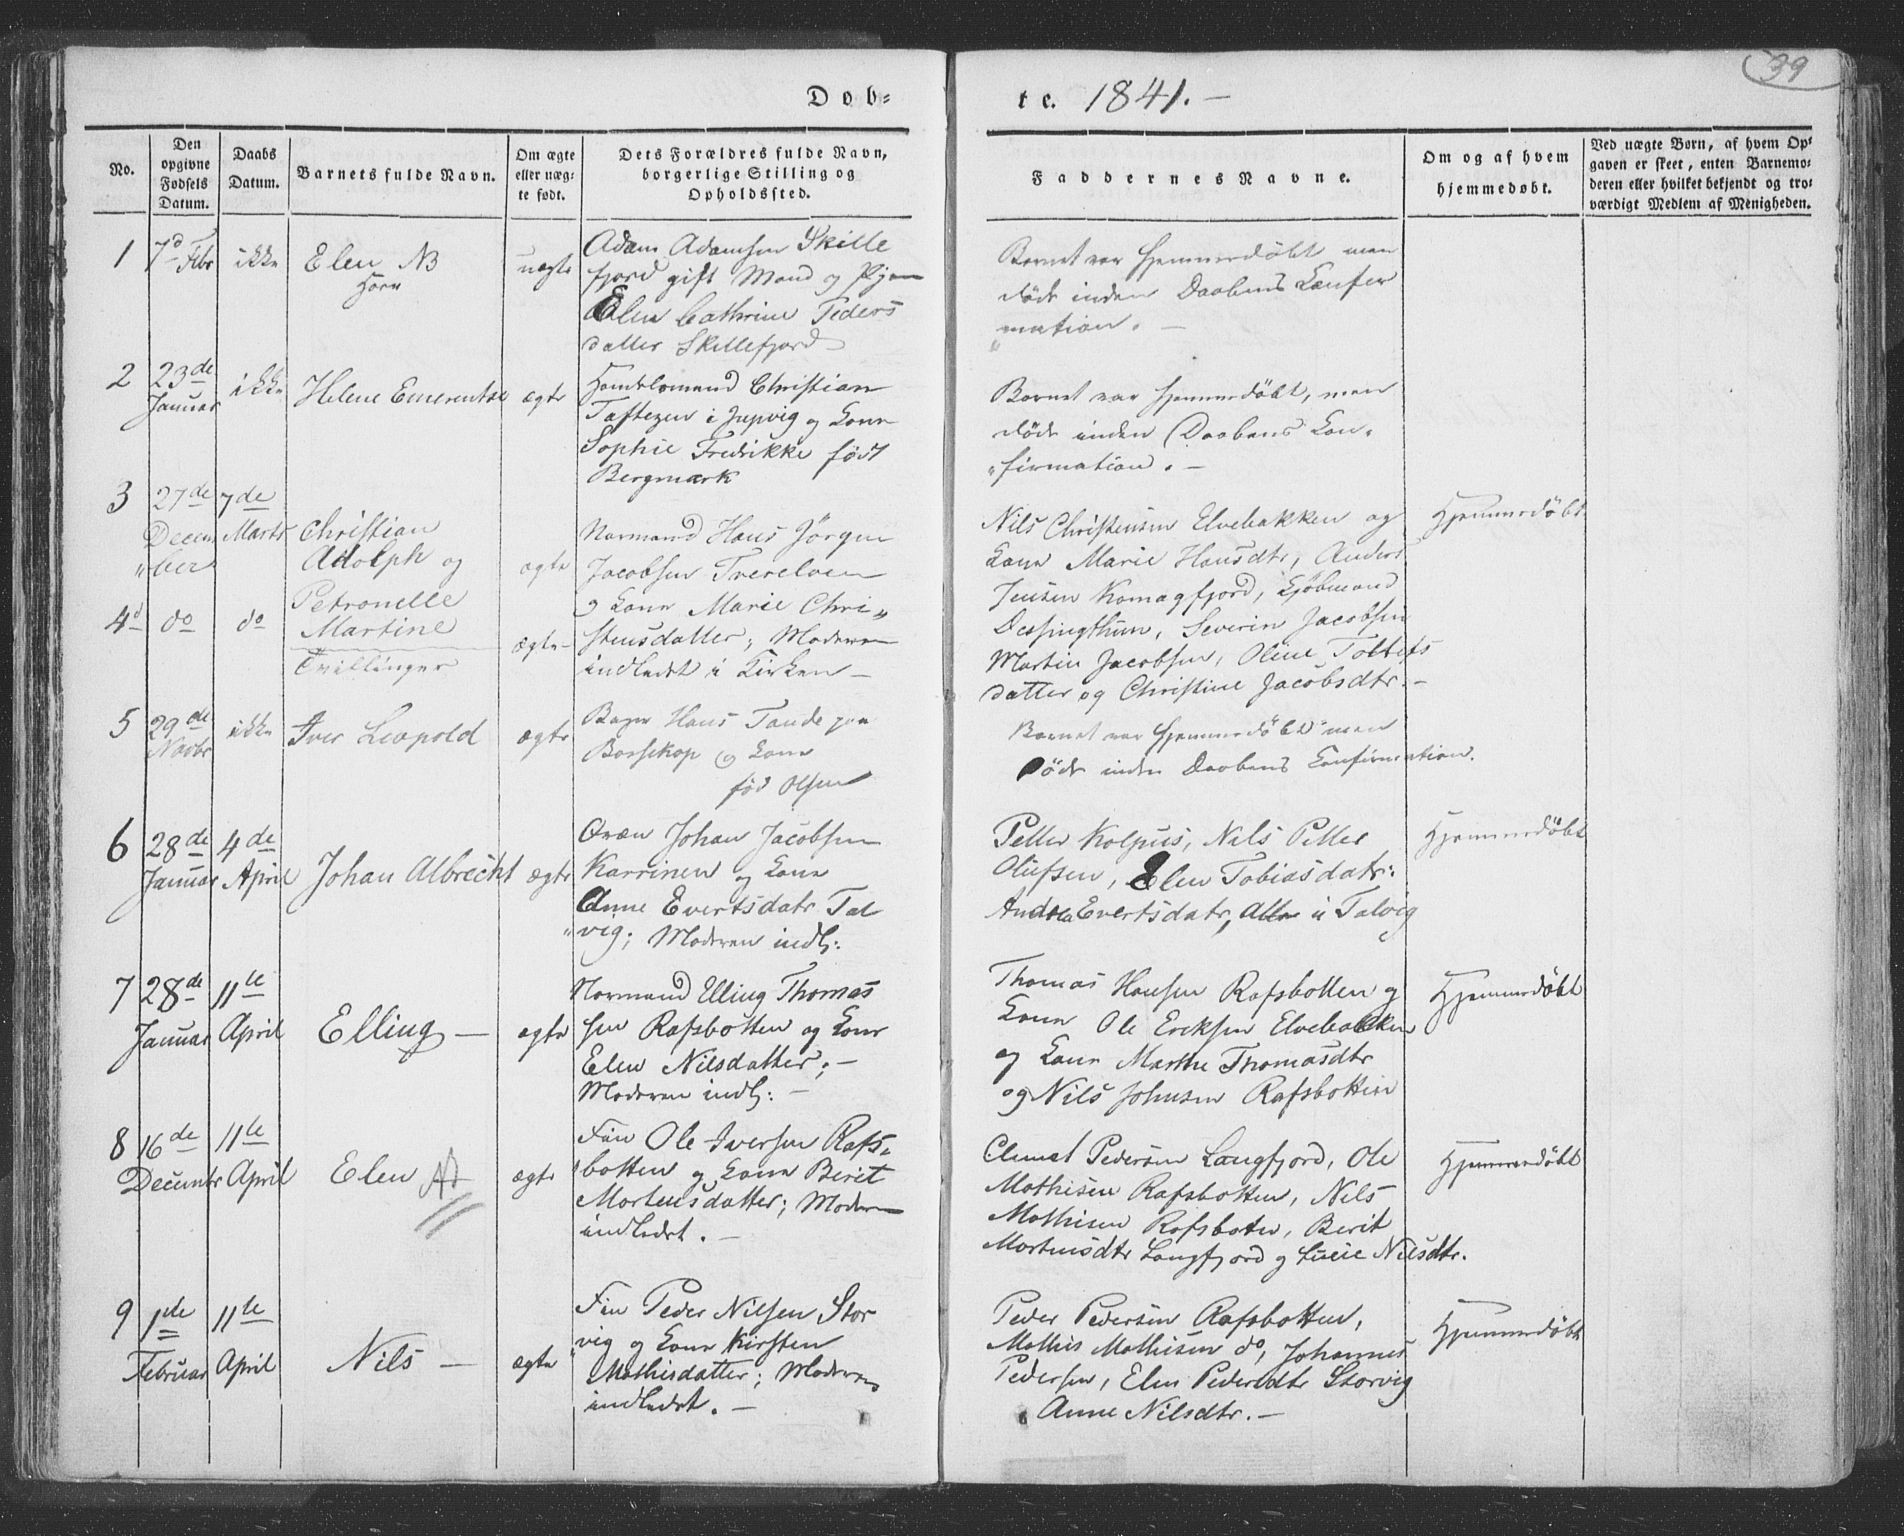 39
Døb=
te. 1841. –
No.
Den opgivne Fødsels Datum.
Daabs Datum.
Barnets fulde Navn.
Om ægte eller uæg- te født.
Dets Forældres fulde Navn, borgerlige Stilling og Opholdssted.
Faddernes Navne.
Om og af hvem hjemmedøbt.
Ved uægte Børn, af hvem Op- gaven er skeet, enten Barnemo- deren eller hvilket bekjendt og tro- værdigt Medlem af Menigheden.
1 7d Febr ikke Elen NB uægte
Adam Adamsen Skille
fjord gift Mand og Pigen
Elen Cathrine Peders
datter Skillefjord –
Barnet var hjemmedøbt men
døde inden Daabens Confir
"mation. –
2 23de Januar ikke Helene Emerentse ægte
Handelsmand Christian
Taftezen i Jupvig og Kone
Sophie Fredrikke født
Bergmark
Barnet var hjemmedøbt, men
døde inden Daabens Con„
"firmation. –
3 27de Decem "ber 7de Marts Christian Adolph og ægte
4d do do Petronelle Martine ægte –
Tvillinger
Normand Hans Jörgen
Jacobsen Tverelven
og Kone Marie Chri„
stensdatter; Moderen
indledet i Kirken –
Nils Christensen Elvebakken og
Kone Marie Hansdtr, Anders
Jensen Komagfjord, Kjøbmand
Severin Jacobsen
Martin Jacobsen, Oline Tollefs
datter og Christine Jacobsdtr. –
Hjemmedøbt
5 29de Novbr ikke Iver Leopold ægte
Bager Hans Tande paa
Bossekop og Kone
fød Olsen
Barnet var hjemmedøbt men
døde inden Daabens Confirmation.
6 28de Januar 4de April Johan Albrecht ægte
Qvæn Johan Jacobsen
Karrinen og Kone
Anne Evertsdatr Tal
"vig; Moderen indl:
Petter Kolpus, Nils Petter
Olufsen, Elen Tobiasdatr:
Evertsdatr, Alle i Talvig
Hjemmedøbt
7 28de Januar 11te April Elling – ægte
Normand Elling Thomas
sen Rafsbotten og Kone
Elen Nilsdatter; –
Moderen indl: –
Thomas Hansen Rafsbotten og
Kone Ole Ericksen Elvebakken
og Kone Marthe Thomasdtr
og Nils Johnsen Rafsbotten
Hjemmedøbt
8 16de Decembr 11te April Elen ægte
Fin Ole Iversen Rafs„
botten og Kone Berit
Mortensdatter; Moderen
indledet. –
Clemet Pedersen Langfjord, Ole
Mathisen Rafsbotten, Nils
Mathisen Rafsboten, Berit
Mortensdtr Langfjord og Nilsdtr.
Hjemmedøbt
9 1de Februar 11te April Nils – ægte
Fin Peder Nilsen Stor
vig og Kone Kirsten
Mathisdatter; Moderen
indledet. –
Peder Pedersen Rafsbotten,
Mathis Mathisen do, Johannes
Pedersen, Elen Pedersdtr Storvig
Anne Nilsdtr. –
Hjemmedøbt